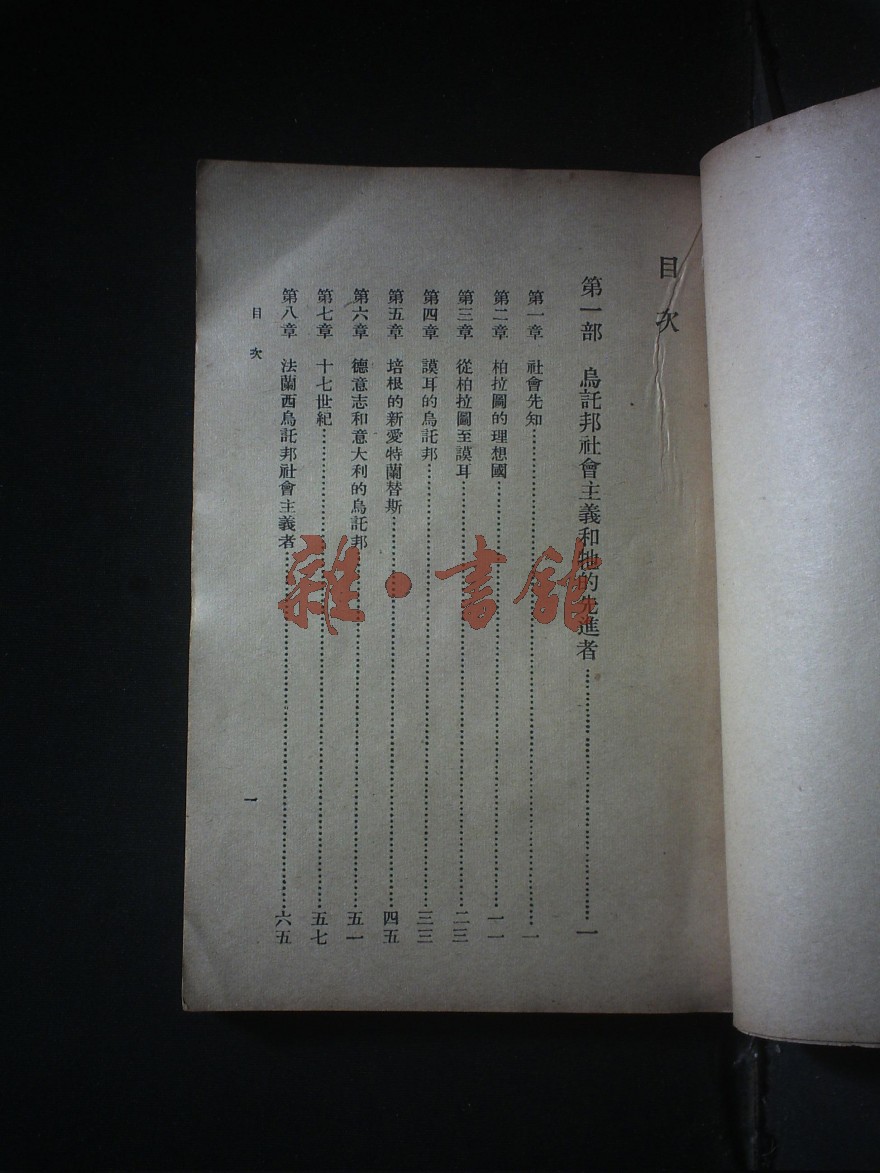 目次
第一部 烏託邦社會主義和牠的先進者……一
第一章 社會先知……一
第二章 柏拉圖的理想國……一一
第三章 從柏拉圖至謨耳……二三
第四章 謨耳的烏託邦……三三
第五章 培根的新愛特蘭替斯……四五
第六章 德意志和意大利的烏託邦……五一
第七章 十七世紀……五七
第八章 法蘭西烏託邦社會主義者……六五
目次
一
雜·書館